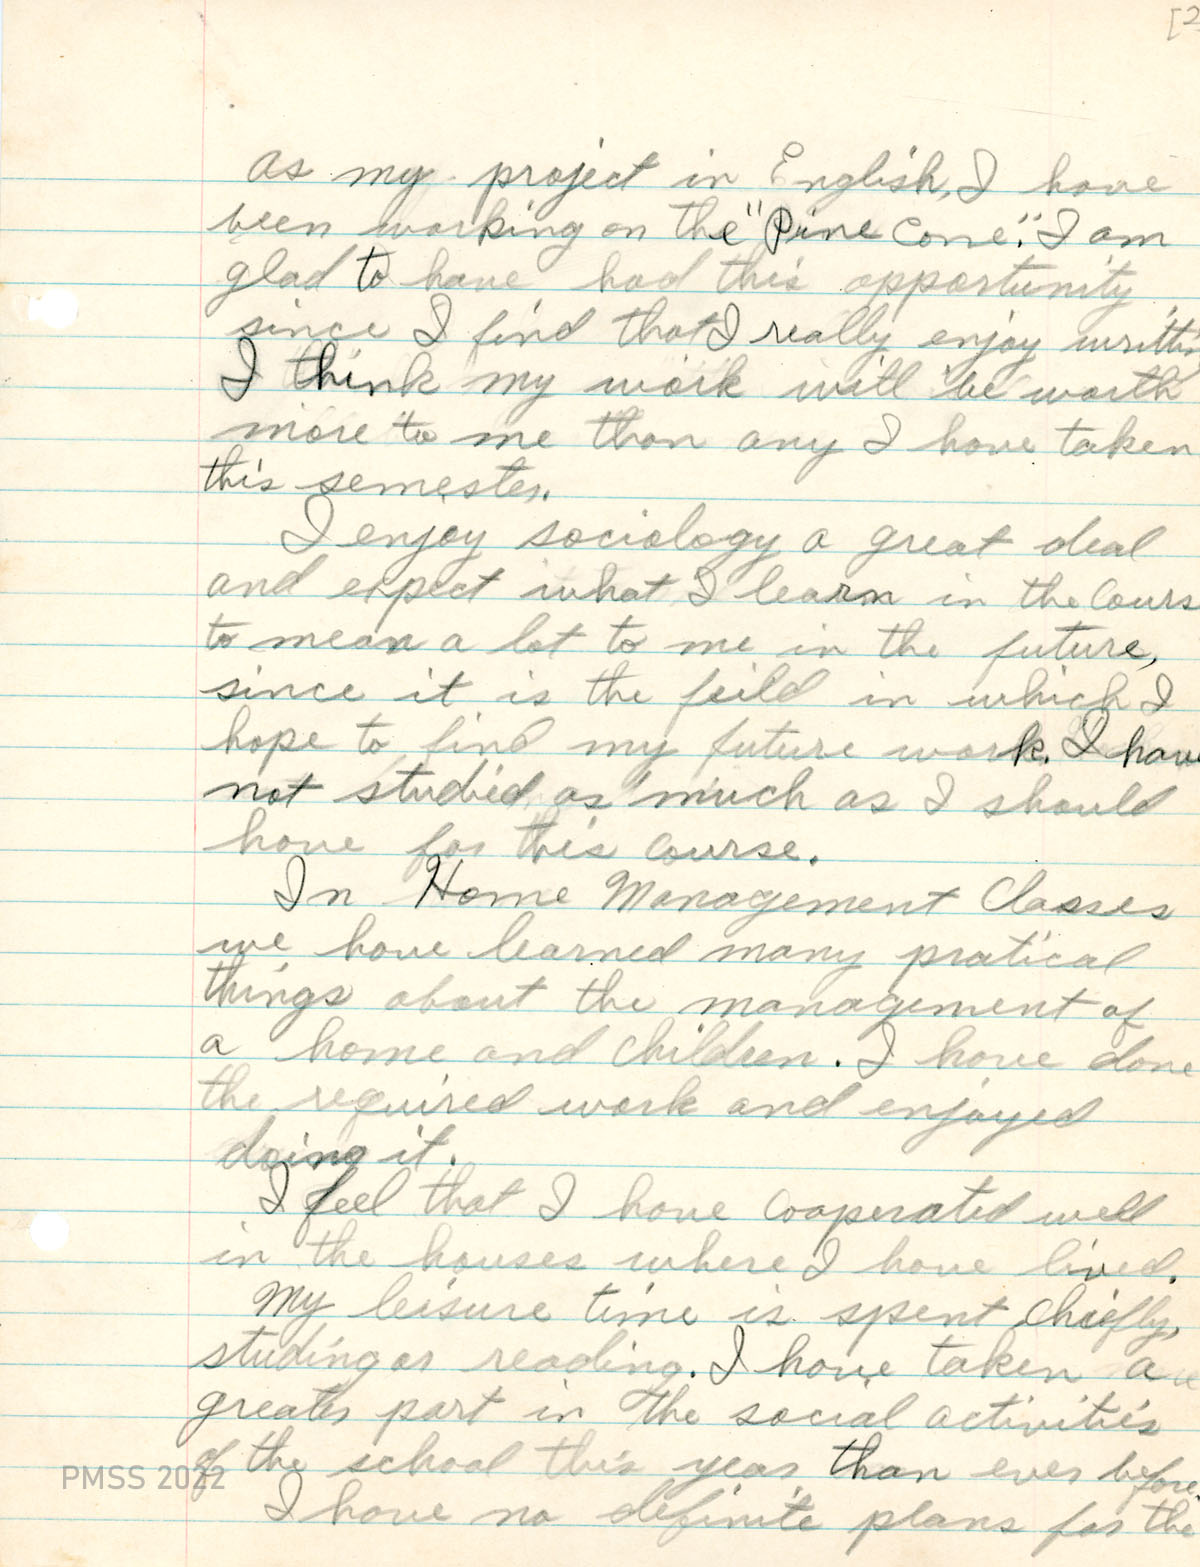 [2
as my project in English, I have
been working on the "Pine Cone". I am
glad to have had this opportunity
since I find that I really enjoy writtin
I think my work will be worth
more to me than any I have taken
this semester.
I enjoy sociology a great deal
and expect what I learn in the Cours
to mean a lot to me in the future,
since it is the feild in which I
hope to find my future work. I have
not studied as much as I should
have for this course.
In Home Management Classes
we have learned many pratical
things about the management of
a home and children. I have done
the required work and enjoyed
doing it.
I feel that I have cooperated well
in the houses where I have lived.
My leisure time is spent chiefly,
studing or reading. I have taken a
greater part in the social activities
of the school this year than ever before.
I have no definite plans for the
PMSS 2022